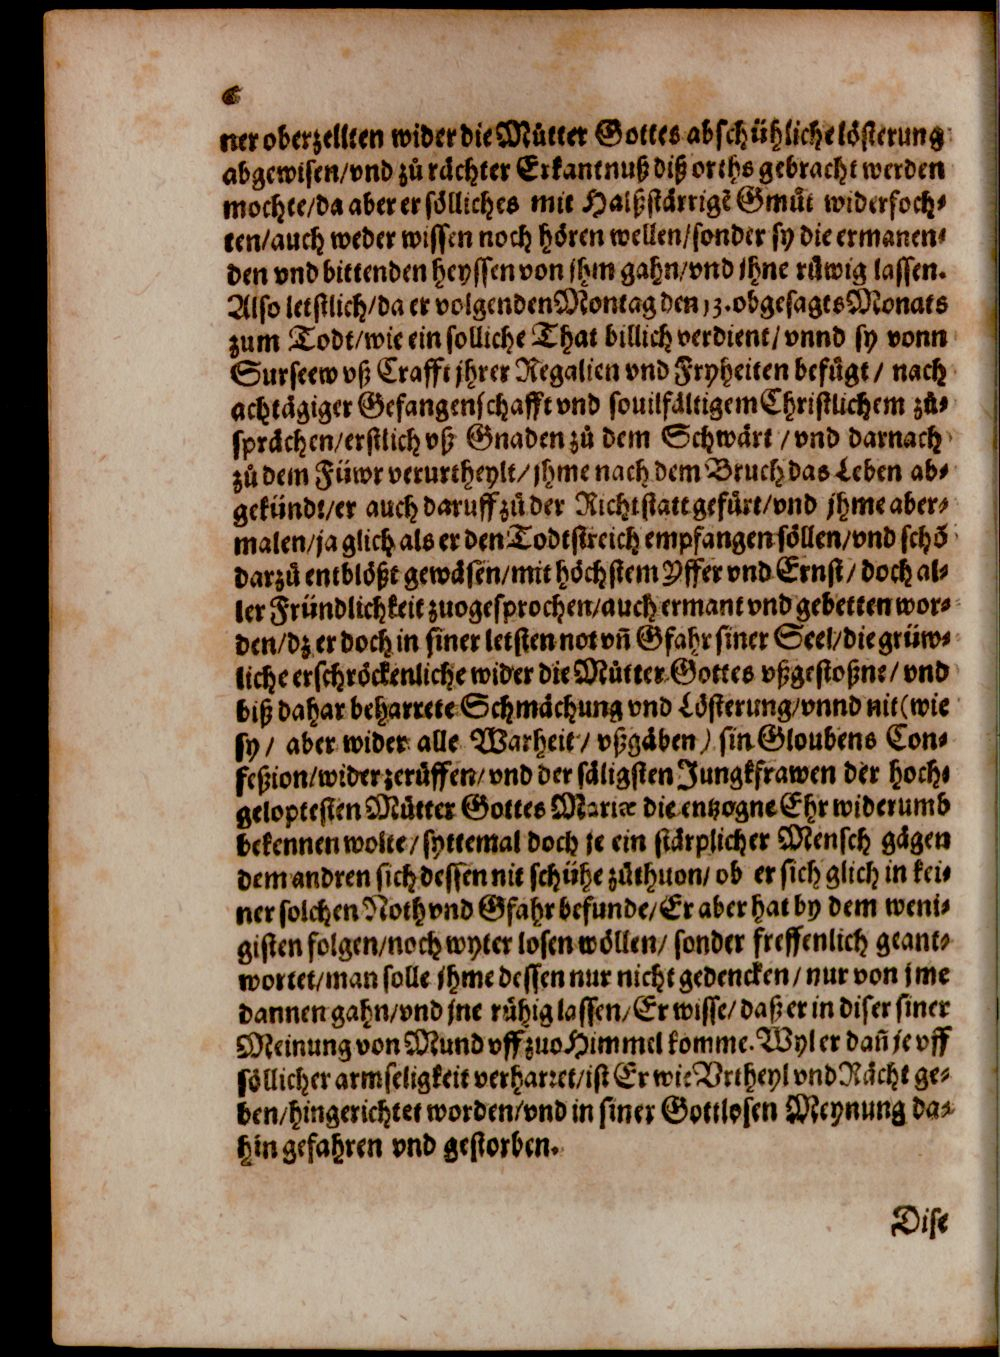 6
ner oberzellten wider die Můtter Gottes abschühliche lösterung
abgewisen/vnd zů rächter Erkantnuß diß orths gebracht werden
mochte/da aber er sölliches mit Halßstärrigē Gmůt widerfoch⸗
ten/auch weder wissen noch hören wellen/sonder sy die ermanen⸗
den vnd bittenden heyssen von jhm gahn/vnd jhne růwig lassen.
Also letstlich/da er volgenden Montag den 13. obgesagts Monats
zum Todt/wie ein solliche That billich verdient/vnnd sy vonn
Surseew vß Crafft jhrer Regalien vnd Fryheiten befůgt/ nach
achtägiger Gefangenschafft vnd souilfältigem Christlichem zů⸗
sprächen/erstlich vß Gnaden zů dem Schwärt/vnd darnach
zů dem Füwr verurtheylt/jhme nach dem Bruch das Leben ab⸗
gekündt/er auch daruff zů der Richtstatt gefürt/vnd jhme aber⸗
malen/ja glich als er den Todtstreich empfangen söllen/vnd schō
darzů entblößt gewäsen/mit höchstem Yffer vnd Ernst/ doch al⸗
ler Fründlichkeit zuogesprochen/auch ermant vnd gebetten wor⸗
den/dz er doch in siner letsten not vn̄ Gfahr siner Seel/die grüw⸗
liche erschröckenliche wider die Můtter Gottes vßgestoßne/vnd
biß dahar beharrete Schmächung vnd Lösterung/vnnd nit (wie
sy/ aber wider alle Warheit/vßgäben) sin Gloubens Con⸗
feßion/widerzerůffen/vnd der säligsten Jungkfrawen der hoch⸗
geloptesten Můtter Gottes Mariæ die entzogne Ehr widerumb
bekennen wolte/syttemal doch je ein stärplicher Mensch gägen
dem andren sich dessen nit schühe zůthuon/ob er sich glich in kei⸗
ner solchen Noth vnd Gfahr befunde/Er aber hat by dem weni⸗
gisten folgen/noch wyter losen wöllen/ sonder freffenlich geant⸗
wortet/man solle jhme dessen nur nicht gedencken/nur von jme
dannen gahn/vnd jne růhig lassen/Er wisse/daß er in diser siner
Meinung von Mund vff zuo Himmel komme. Wyl er dan̄ je vff
söllicher armseligkeit verharret/ist Er wie Vrtheyl vnd Rächt ge⸗
ben/hingerichtet worden/vnd in siner Gottlosen Meynung da⸗
hin gefahren vnd gestorben.
Dise